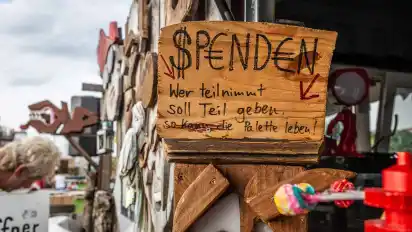 $PENDEN
Wer teilnimmt
soll Teil geben,
so kann die Palette leben!
ffner